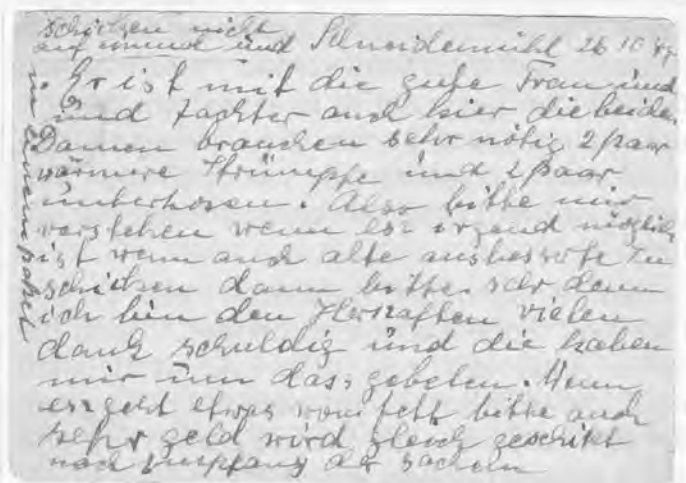 schicken nicht
auf mund und Schneidemühl 26 10
. Er ist mit die gute Frau und
und tochter auch hier die beiden
Damen brauchen sehr nötig 2 paar
wärmere Strümpfe und 2 paar
unterhosen. Also bitte mir
verstehen wenn esz irgend möglich
ist wenn auch alte ausbesserte zu
schicken dann bitte sehr denn
ich bin den Herszaften vielen
dank schuldig und die haben
mir um dass gebeten. Wenn
esz geht etwas vom fett bitte auch
sehr geld wird gleich geschikt
nach empfang der sachen
in einem paket